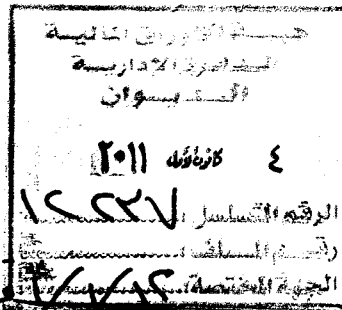 هيئة الأوراق المالية
الدائرة الإدارية
الديوان
٤ كانون أول ٢٠١١
الرقم المتسلسل ١٢٢٣٧
رقم الملف
الجهة المختصة